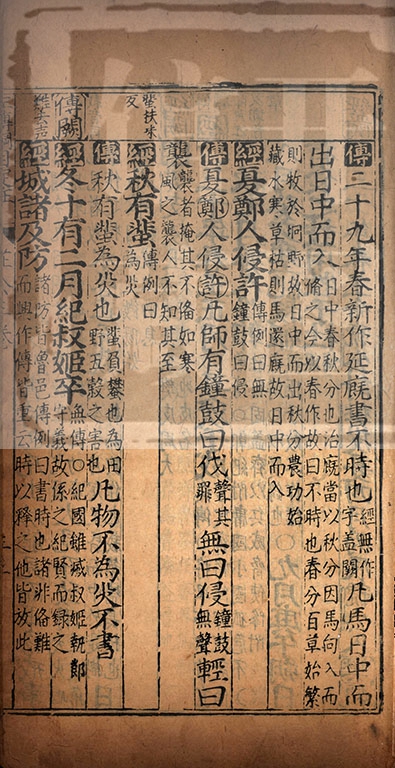 傳二十九年春新作延廄書不時也經無作字蓋闕凡馬日中而
出日中而入日中春秋分也治廄當以秋分因馬向入而脩之今以春作故曰不時也春分百草始繁
則牧於坰野故日中而出秋分農功始藏水寒草枯則馬還廄故日中而入
經夏鄭人侵許傳例曰無鐘鼓曰侵
傳夏鄭人侵許凡師有鐘鼓曰伐聲其罪無曰侵鐘鼓無聲輕曰
襲襲者掩其不俻如寒風之襲人不知其至
蜚扶味反
經秋有蜚傳例曰為災
傳秋有蜚為災也蜚負蠜也為田野五穀之害也凡物不為災不書
傳闕
經冬十有二月紀叔姬卒無傳○紀國雖滅叔姬執節守義故係之紀賢而錄之
經城諸及防諸防皆魯邑傳例曰書時也諸非俻難而興作傳皆重云時以釋之他皆放此